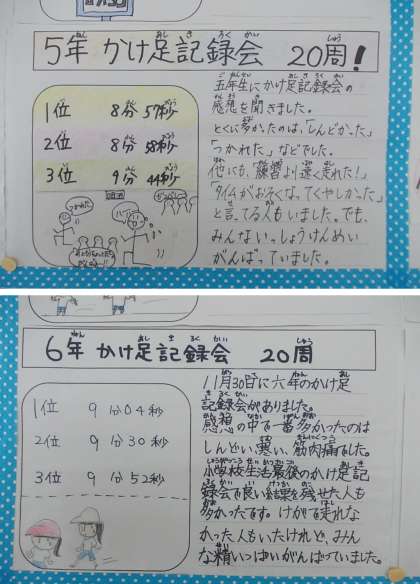 5年 かけ足記録会 20周!
1位 8分57秒
2位 8分58秒
3位 9分44秒
五年生にかけ足記録会の
感想を聞きました。
とくに多かったのは、「しんどかった」
「つかれた」などでした。
他にも、「練習より速く走れた!」
「タイムがおそくなってくやしかった」
と言ってる人もいました。でも、
みんないっしょうけんめい
がんばっていました。
6年 かけ足記録会 20周
1位 9分04秒
2位 9分30秒
3位 9分52秒
11月30日に六年のかけ足
記録会がありました。
感想の中で一番多かったのは
しんどい、寒い、筋肉痛でした。
小学校生活最後のかけ足記
録会で良い結果を残せた人も
多かったです。けがで走れな
かった人もいたけれど、みん
な精いっぱいがんばっていました。